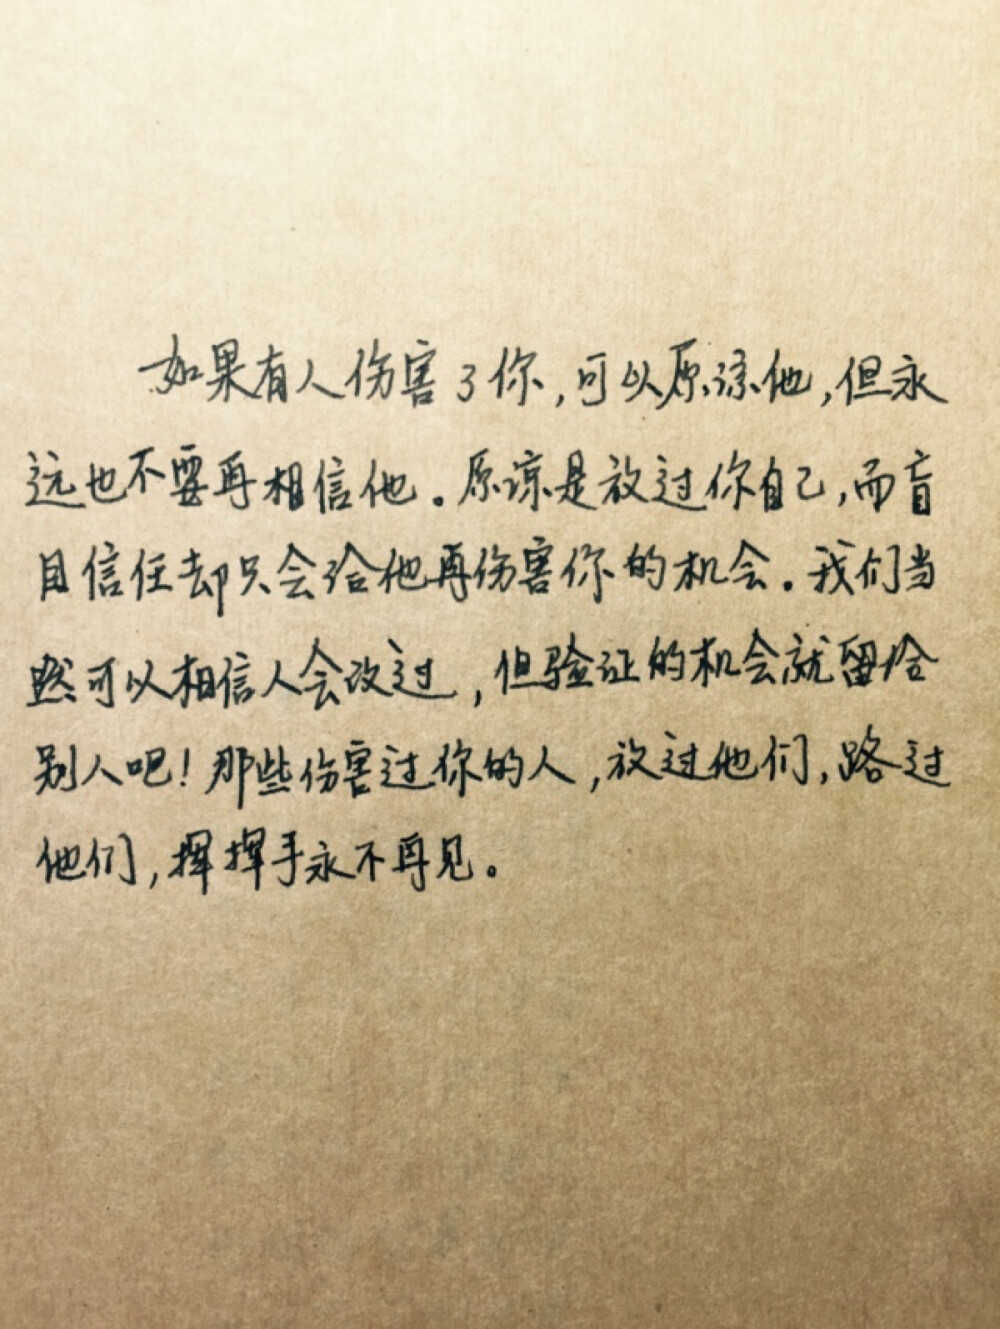 如果有人伤害了你,可以原谅他,但永
远也不要再相信他。原谅是放过你自己,而盲
目信任却只会给他再伤害你的机会。我们当
然可以相信人会改过,但验证的机会就留给
别人吧!那些伤害过你的人,放过他们,路过
他们,挥挥手永不再见。